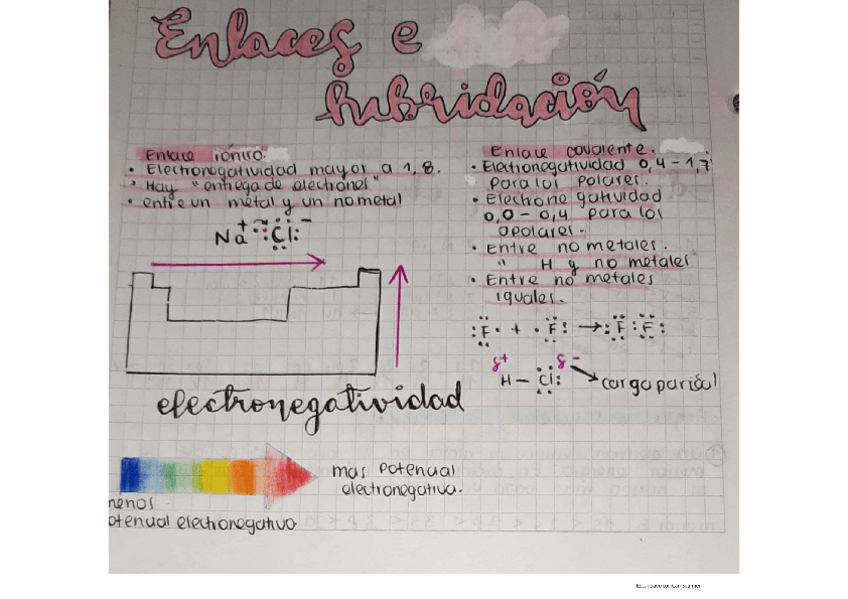 Enlaces e
hibridación
Enlace iónico:
• Electronegatividad mayor a 1,8.
• Hay "entrega de electrones"
• entre un metal y un no metal
Na⁺ Cl⁻
electronegatividad
mas potencial
electronegativo.
menos
potencial electronegativo
Enlace covalente.
• Electronegatividad 0,4 - 1,7
para los polares.
• Electronegatividad
0,0 - 0,4 para los
apolares.
• Entre no metales.
" H y no metales
• Entre no metales
iguales.
:F· + ·F: → :F:F:
δ+ δ-
H - Cl: carga parcial